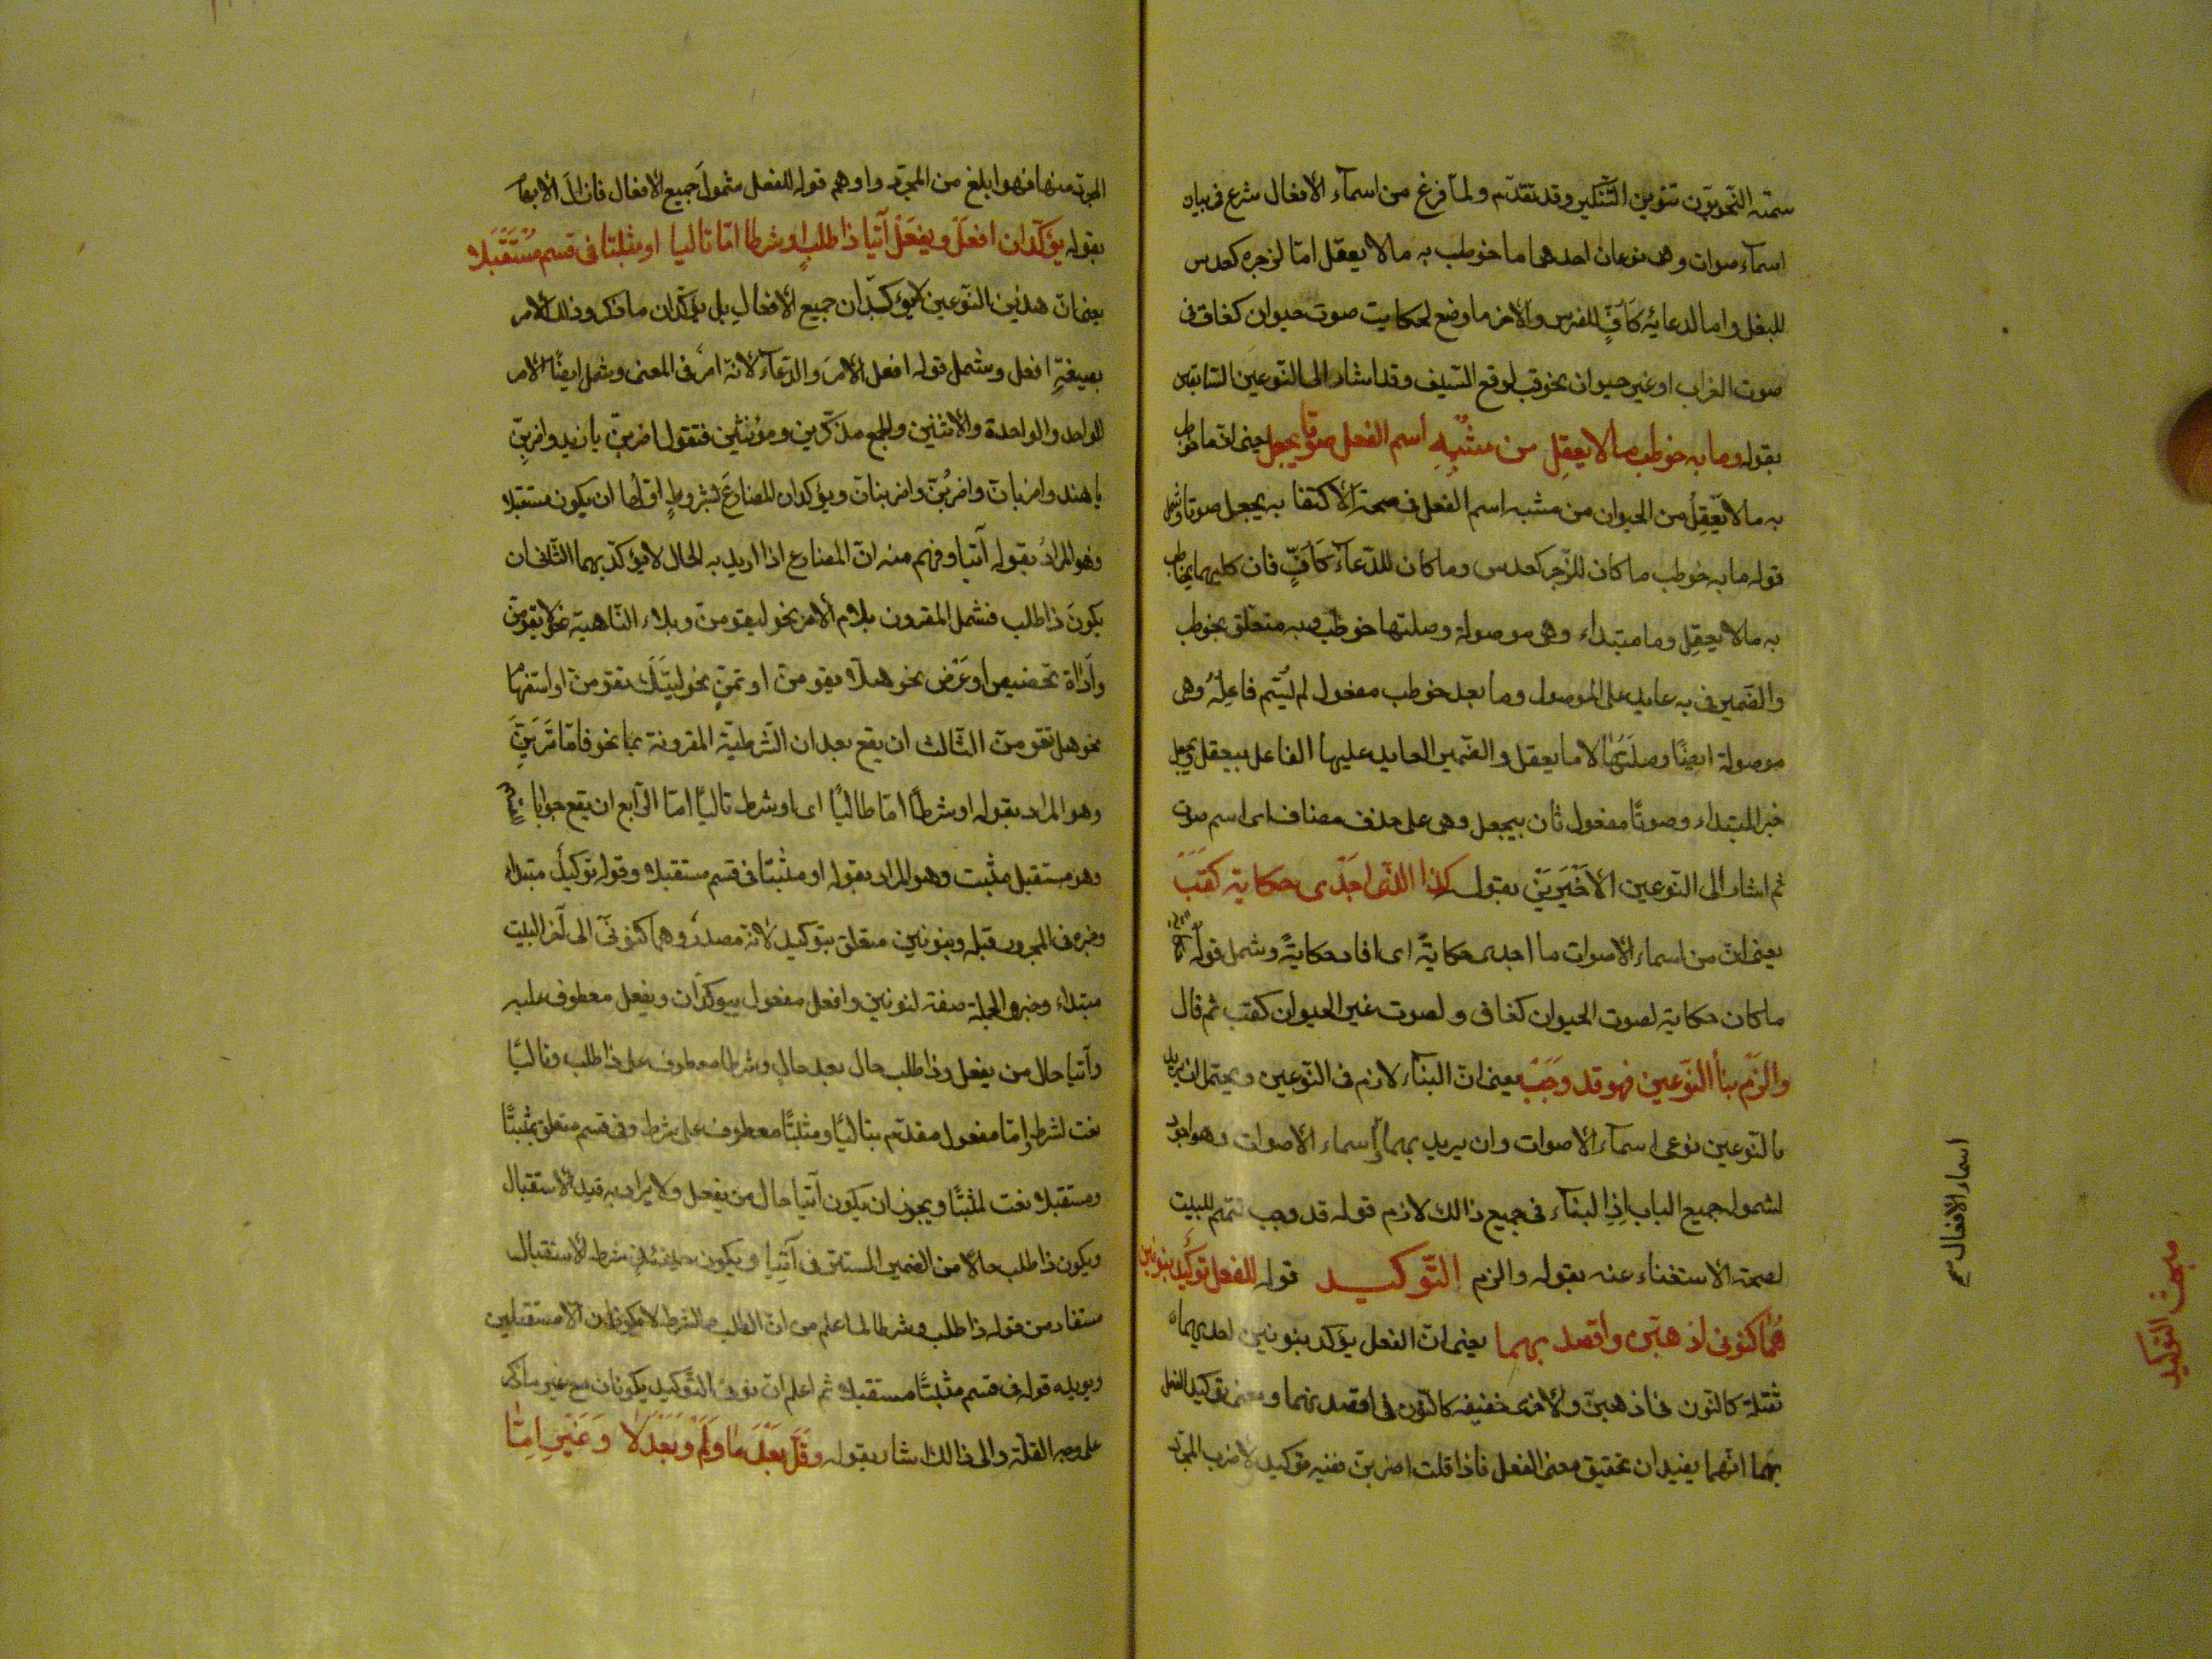 سمته النحويون تنوين التنكير وقد تقدم ولما فرغ من اسمآء الافعال شرع فى بيان
اسمآء صوات وهى نوعان احدهما ما خوطب به ما لا يعقل اما لزجره كعدس
للبغل واما لدعايه كَأَوٍّ للفرس والآخر ما وضع لحكايت صوت حيوان كغاق فى
صوت الغراب او غير حيوان نحو قب لوقع السّيف وقد اشار الى النّوعين السّابقين
بقوله وما به خوطب ما لا يعقل من مشبه اسم الفعل صوتا يجعل يعنى انّ ما خوطب
به ما لا يَعْقِلُ من الحيوان من مشبه اسم الفعل فى صحة الاكتفا به يجعل صوتا وشمل
قوله ما به خوطب ما كان للزّجر كعدس وما كان للدّعآء كَأَوٍّ فان كليهما يخاطب
به ما لا يعقل وما مبتداء وهى موصولة وصلتها خوطب وبه متعلّق بخوطب
والضّمير فى به عايد على الموصول وما بعد خوطب مفعول لم يُسَّم فاعِلهُ وهى
موصولة ايضًا وصلَتُهَا لا ما يعقل والضّمير العايد عليها الفاعل بيعقل ويجعل
خبر المبتداء وصوتًا مفعول ثان بيجعل وهى على حذف مضاف اى اسم صوت
ثم اشار الى النّوعين الاَخْيَريَنْ بقوله كذا الذى اجدى حكاية كقَبَ
يعنى انّ من اسماء الاصوات ما اجدى حكايةً اى افاد حكايةً وشمل قوله
ما كان حكاية لصوت الحيوان كغاق ولصوت غير الحيوان كقب ثم قال
والزم بنا النّوعين فهو قد وَجَبْ يعنى انّ البنآء لازم فى النّوعين ويحتمل ان يريد
بالنّوعين نوعى اسمآء الاصوات وان يريد بهما اسماء الاصوات وهو اجود
لشموله جميع الباب اِذِ البنآء فى جميع ذالك لازم قوله قد وجب تتميم للبيت
لصحة الاستغناء عنه بقوله والزم التّوكيد قوله للفعل توكيد بنونين
هُمَا كنونى اذهبنّ واقصد بهما يعنى انّ الفعل يؤكد بنونين احديهما
ثقيلة كالنّون فى اذهبنّ والاخرى خفيفه كالنّون فى اقصد نهما ومعنى توكيد الفعل
بهما انّهما يفيدان تحقيق معنى الفعل فاذا قلت اضربنّ ففيه توكيد لاضرب المجرّد
اسماء الافعال
مبحث التوكيد
المجرّد منها فهو ابلغ من المجرّد واوهم قوله للفعل شمول جميع الافعال فازال الابهام
بقوله يؤكّدان افعل ويفعل آتيا ذا طلب او شرطا امّا تاليا او مثبتا فى قسم مُسْتَقْبَلا
يعنى انّ هذين النّوعين لا يؤكّدان جميع الافعال بل يؤكّدان ما ذكر وذلك الامر
بصيغة افعل وشمل قوله افعل الامر والدّعآء لانّه امر فى المعنى وشمل ايضًا الامر
للواحد والواحدة والاثنين والجمع مذكّرين ومؤنثين فتقول اضربنّ يا زيد واضربِنّ
يا هند واضربانّ واضربُنّ واضربنانّ ويؤكدان المضارع بشروط اوّلها ان يكون مستقبلا
وهو المراد بقوله آتيا وفهم منه انّ المضارع اذا اريد به الحال لا يؤكّد بهما الثّانى ان
يكون ذا طلب فشمل المقرون بلام الامر نحو ليقومنّ وبلاء النّاهية نحو لا يقومنّ
واداة تحضيض او عَرْض نحو هلّا تقومنّ او تمنٍّ نحو ليتك تقومنّ او استفهاما
نحو هل تقومنّ الثّالث ان يقع بعد ان الشّرطيّة المقرونة بما نحو فامّا تَرَيِنَّ
وهو المراد بقوله او شرطًا امّا طاليًا اى او شرط تاليًا امّا الرّابع ان يقع جوابا
وهو مستقبل مثبت وهو المراد بقوله او مثبتا فى قسم مستقبلا وقوله توكيد مبتداء
وخبره فى المجرور قبله وبنونين متعلق بتوكيد لانّه مصدر وهما كنونى الى آخر البيت
مبتداء وخبر والجملة صفة لنونين وافعل مفعول بيوكّدان ويفعل معطوف عليه
وآتيا حال من يفعل وذا طلب حال بعد حال وشرطا معطوف على ذا طلب وتاليًا
نعت لشرط وامّا مفعول مقدّم بتاليًا ومثبتًا معطوف على شرط وفى قسم متعلق بمثبتًا
ومستقبلا نعت لمثبتًا ويجوز ان يكون آتيا حال من يفعل ولا يراد به قيد الاستقبال
ويكون ذا طلب حالًا من الضمير المستتر فى آتيا ويكون حينئذٍ شرط الاستقبال
مستفاد من قوله ذا طلب وشرطا لما علم من انّ الطلب والشرط لا يكونان الّا مستقبلين
ويويده قوله فى قسم مثبتًا مستقبلا ثم اعلم انّ نونى التّوكيد يكونان مع غير ما ذكر
على وجه القلّة والى ذالك اشار بقوله وقَلَّ بَعْدَ ما ولَمْ وبَعْدَ لا وَغَيْرِ اِمّا